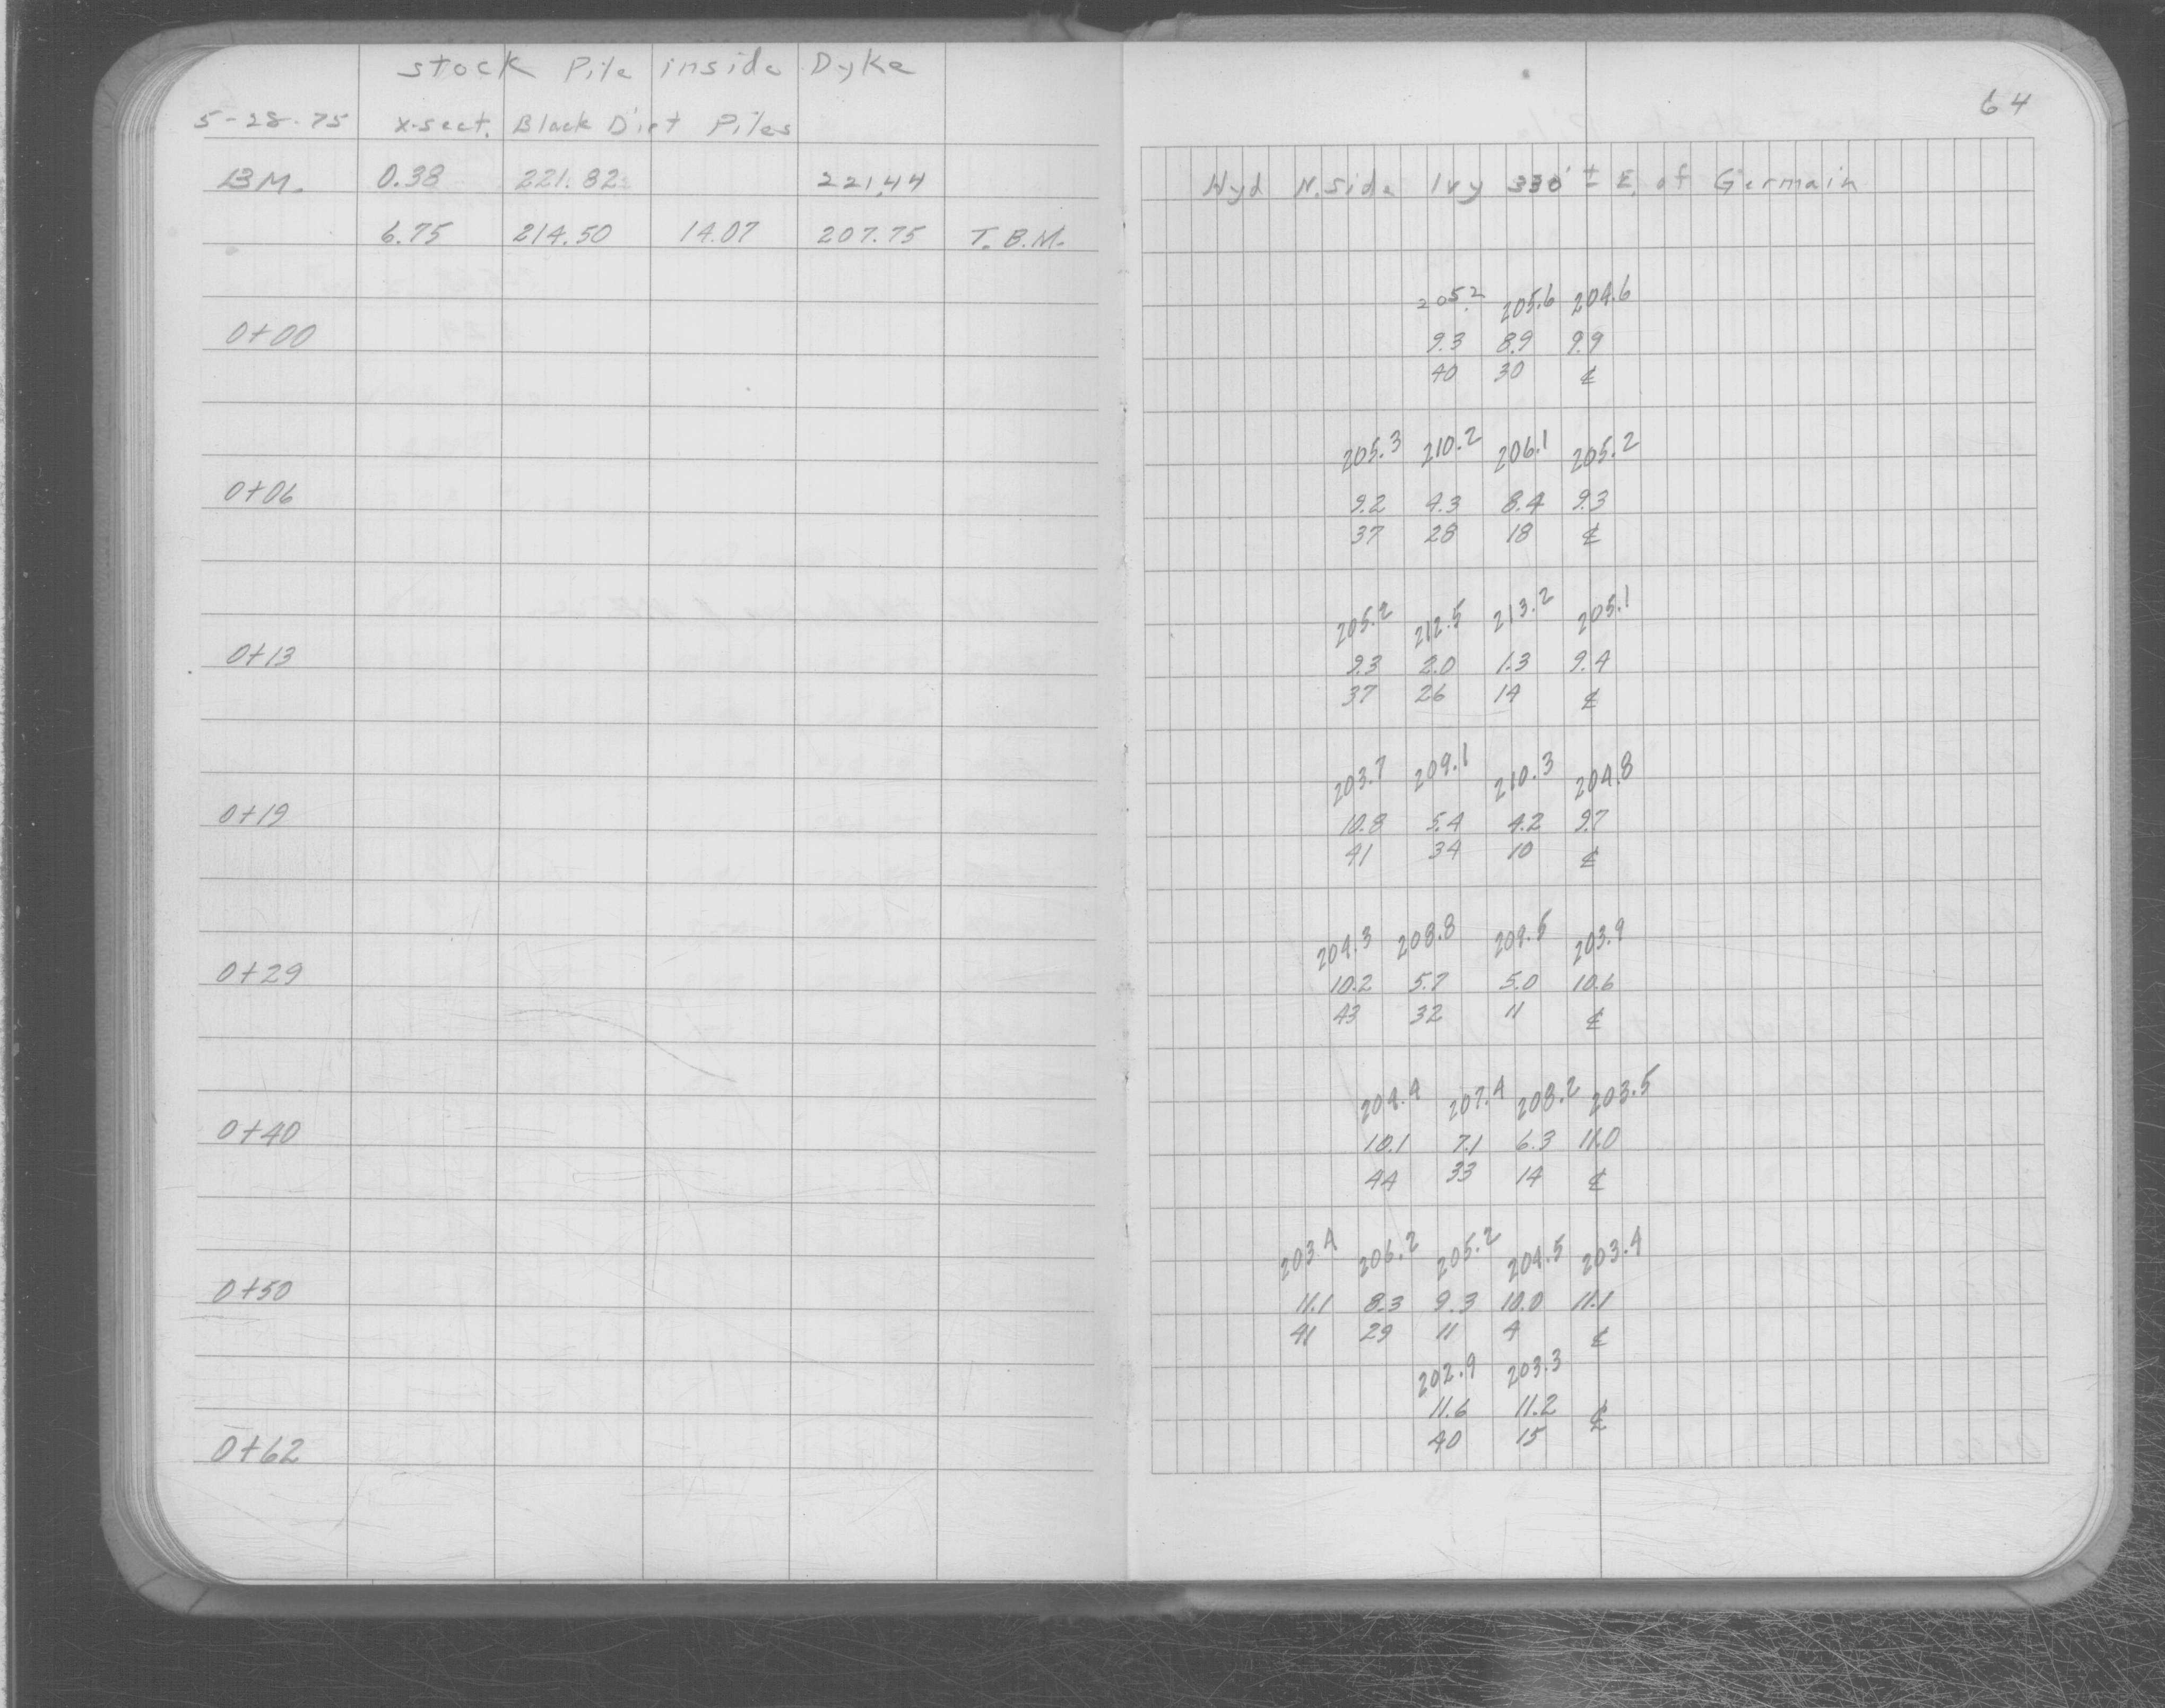 stock Pile inside Dyke
5-28-75 X-sect. Black Dirt Piles
64
B.M. 0.38 221.82 221.44 Hyd N. Side Ivy 330' ± E. of Germain
6.75 214.50 14.07 207.75 T.B.M.
205.2 205.6 204.6
0+00 9.3 8.9 9.9
40 30 ℄
205.3 210.2 206.1 205.2
0+06 9.2 4.3 8.4 9.3
37 28 18 ℄
205.2 212.5 213.2 205.1
0+13 9.3 2.0 1.3 9.4
37 26 14 ℄
203.7 209.1 210.3 204.8
0+19 10.8 5.4 4.2 9.7
41 34 10 ℄
204.3 208.8 209.5 203.9
0+29 10.2 5.7 5.0 10.6
43 32 11 ℄
204.4 207.4 208.2 203.5
0+40 10.1 7.1 6.3 11.0
44 33 14 ℄
203.4 206.2 205.2 204.5 203.4
0+50 11.1 8.3 9.3 10.0 11.1
41 29 11 4 ℄
202.9 203.3
11.6 11.2 ℄
0+62 40 15